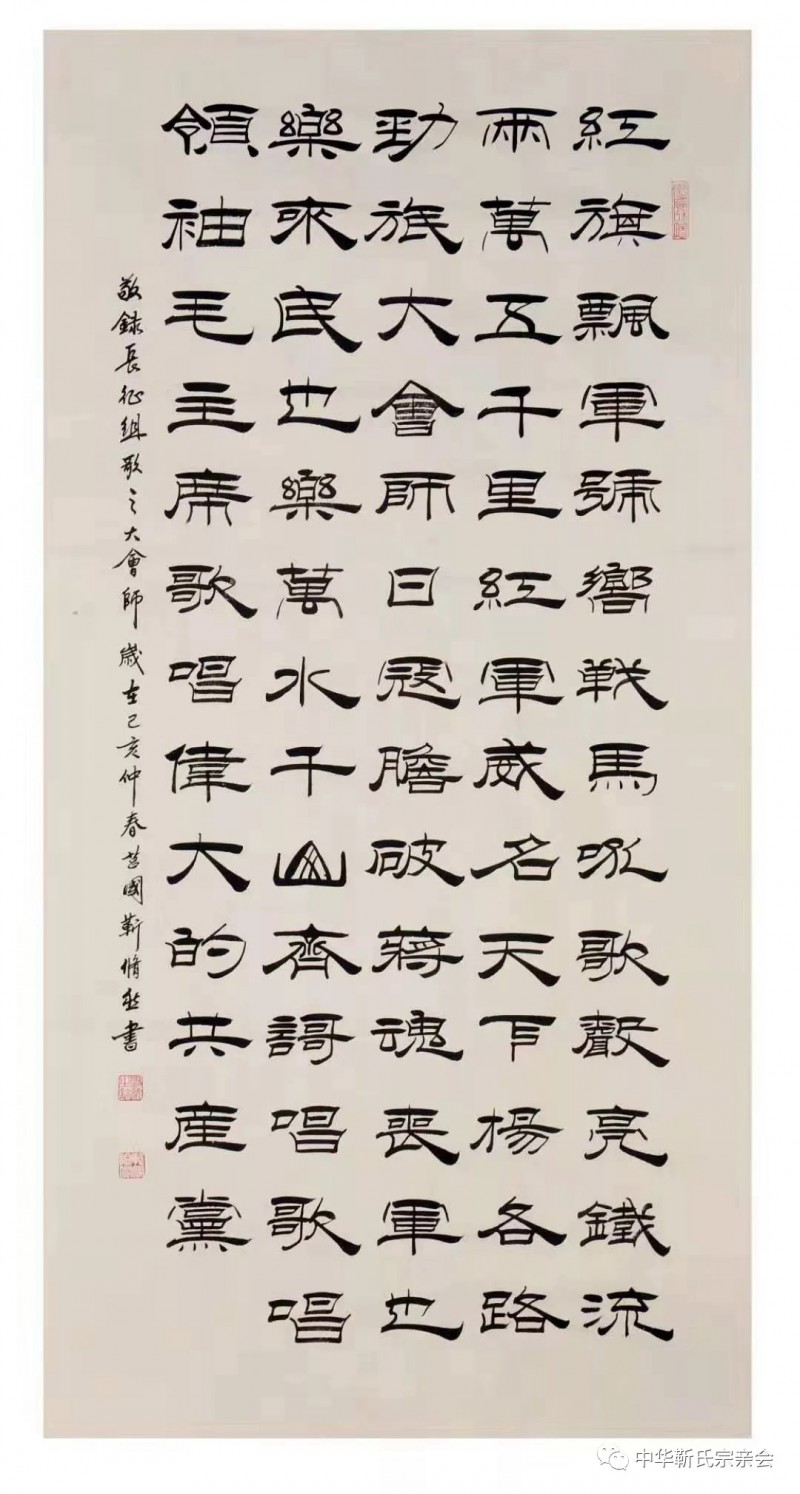 紅旗飄軍號響戰馬吼歌聲亮鐵流
兩萬五千里紅軍威名天下楊各路
勁旅大會師日寇膽破蔣魂喪軍也
樂來民也樂萬水千山齊謌唱歌唱
領袖毛主席歌唱偉大的共産黨
敬錄長征組歌之大會師 歲在己亥仲春莒國靳脩書
中华靳氏宗亲会